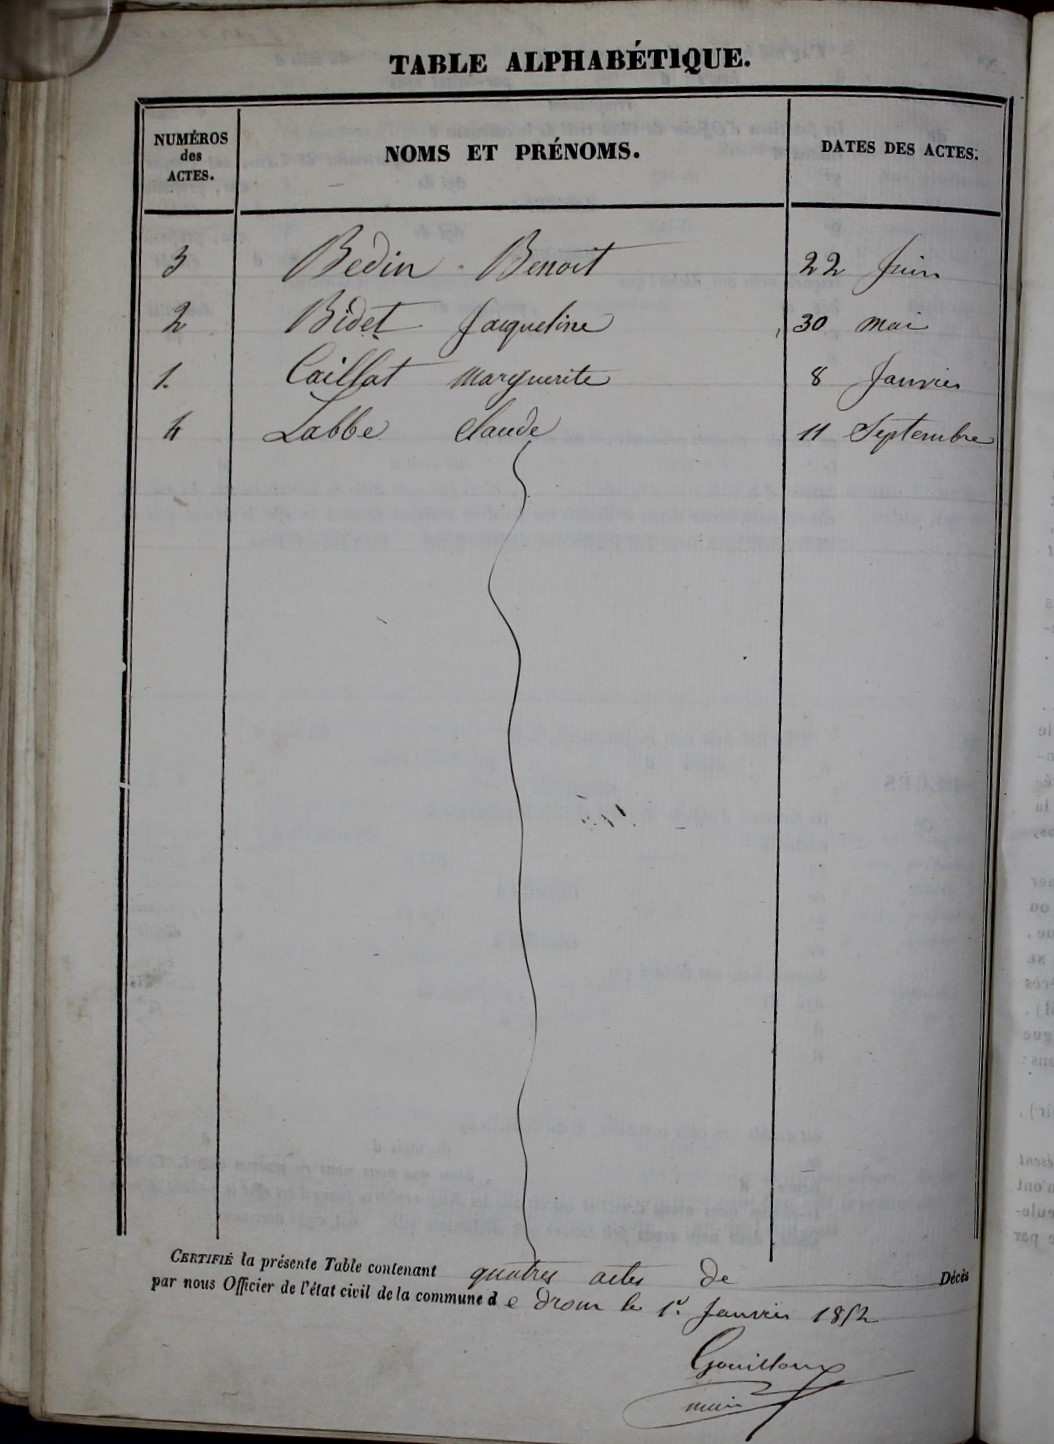 TABLE ALPHABÉTIQUE.
NUMÉROS des ACTES. NOMS ET PRÉNOMS. DATES DES ACTES.
3 Bedin Benoit 22 Juin
2 Bidet Jacqueline 30 mai
1. Caillat Marguerite 8 Janvier
4 Labbe Claude 11 Septembre
CERTIFIÉ la présente Table contenant quatres actes de Décès
par nous Officier de l'état civil de la commune de Drom le 1er Janvier 1852
Gouilloux
maire